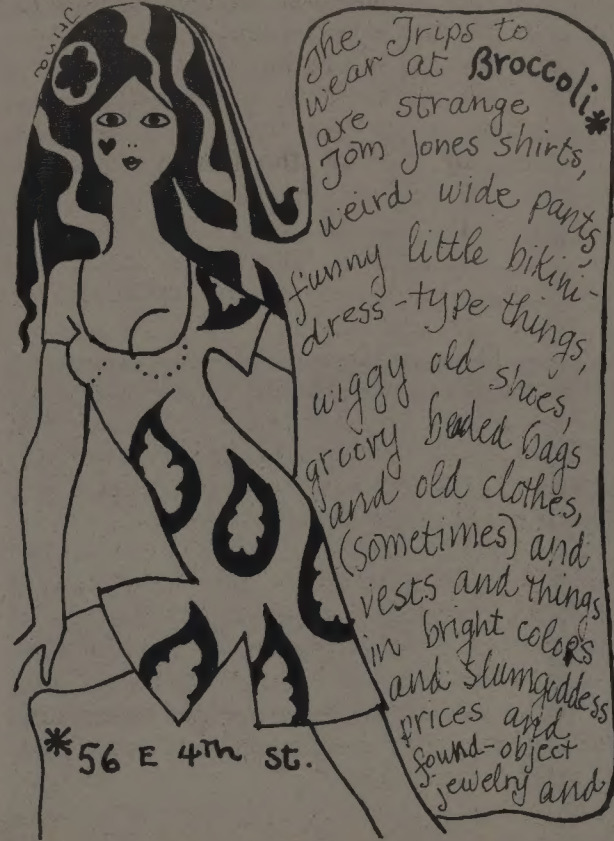 Irina
The Trips to
wear at Broccoli*
are strange
Tom Jones shirts,
weird wide pants,
funny little bikini-
dress-type things,
wiggy old shoes,
groovy beaded bags
and old clothes,
(sometimes) and
vests and things
in bright colors
and slumgoddess
prices and
found-object
jewelry and
*56 E 4th st.